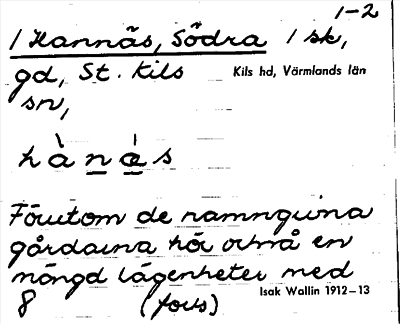 1-2
/ Hannäs, Södra / sk,
gd, St. Kils Kils hd, Värmlands län
sn,
hànás
Förutom de namngivna
gårdarna hör också en
mängd lägenheter med
8 (forts) Isak Wallin 1912-13